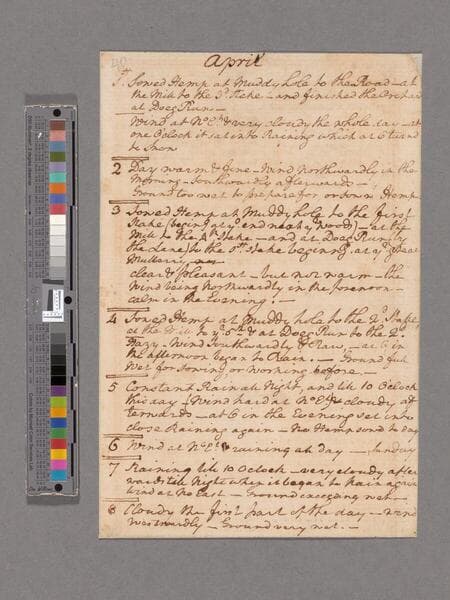 April
1st. Sowed Hemp at Muddy hole to the Road – at
the Mill to the Stake – and finished the Orchard
at Doeg Run –
Wind at No. Et. & very cloudy the whole day – at
one Oclock it set into Raining which at 6 turnd
to Snow
2 Day warm & fine – Wind Northwardly in the
Morning – Southwardly afterwards –
Ground too wet to prepare for or sow in Hemp
3 Sowed Hemp at Muddy hole to the first
Stake (begin'g at ye. end next ye. wood) – at the
Mill to the Stake – and at Doeg Run by
the lane) to the Stake beginng. at ye. great
Mulberry
clear & pleasant – but not warm – the
Wind being Northwardly in the forenoon –
calm in the Evening. –
4 Sowed Hemp at Muddy hole to the 2d. Stake
at the Mill to ye. 5th. & at Doeg Run to the 2d.
Hazy. Wind Southwardly & Raw, – at 6 in
the afternoon began to Rain. – Ground full
Wet for Sowing or Working before. –
5 Constant Rain all Night, and till 10 Oclock
this day – Wind hard at No. Et. & cloudy af
terwards – at 6 in the Evening set into
close Raining again – No Hemp sowd to day
6 Wind at No. Et. & raining all day – Sunday
7 Raining till 10 Oclock – very cloudy after
wards till Night when it began to Rain again
Wind at No. East – Ground exceeding wet –
8 Cloudy the first part of the day – Wind
Westwardly – Ground very wet. –